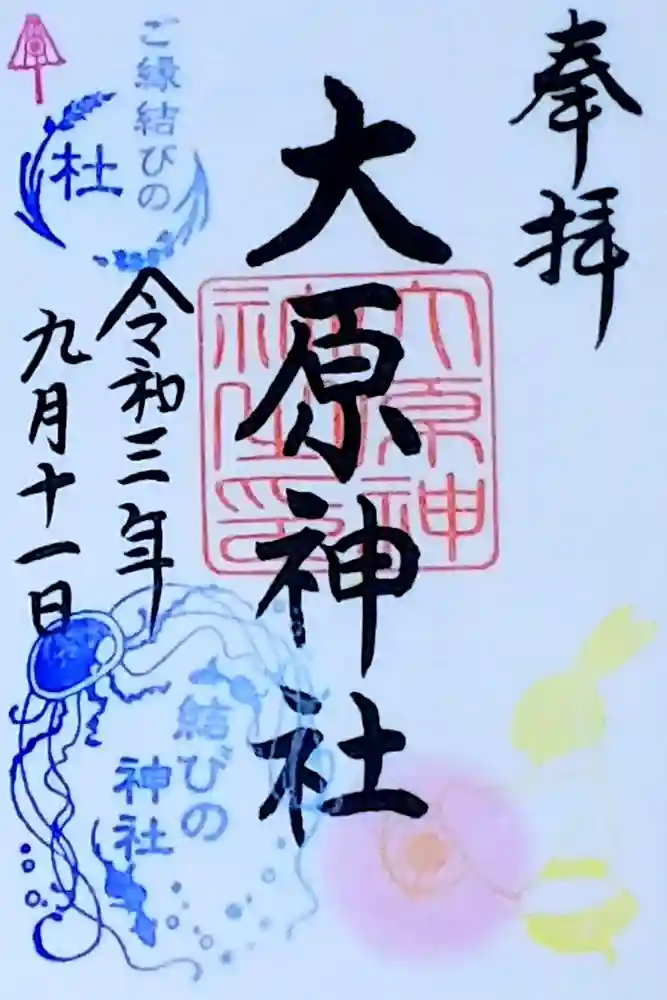 奉拝
大原神社
大原神
社印
令和三年
九月十一日
ご縁結びの
杜
結びの
神社